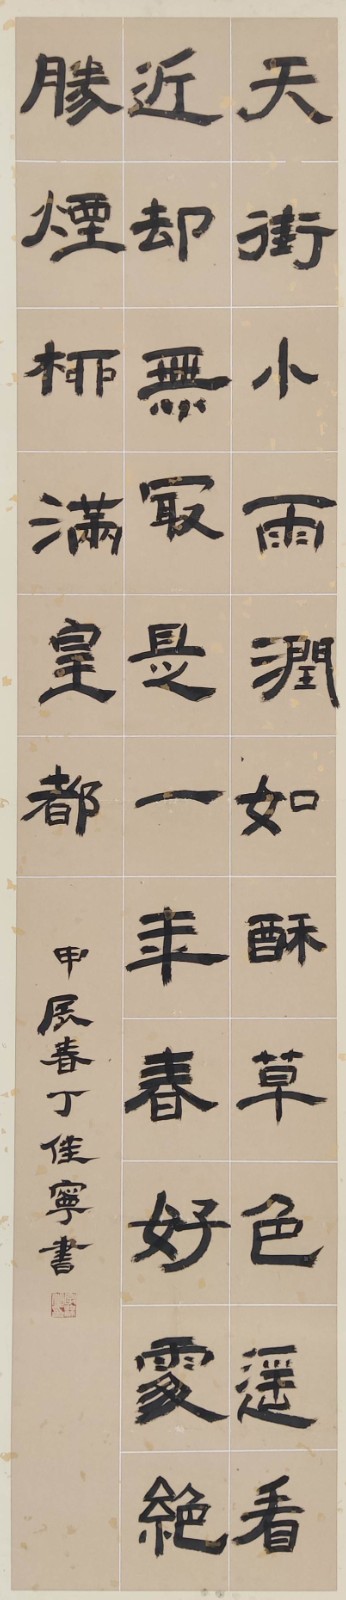 天街小雨潤如酥草色遥看
近却無冣是一年春好處絶
勝煙柳滿皇都
甲辰春丁佳寧書